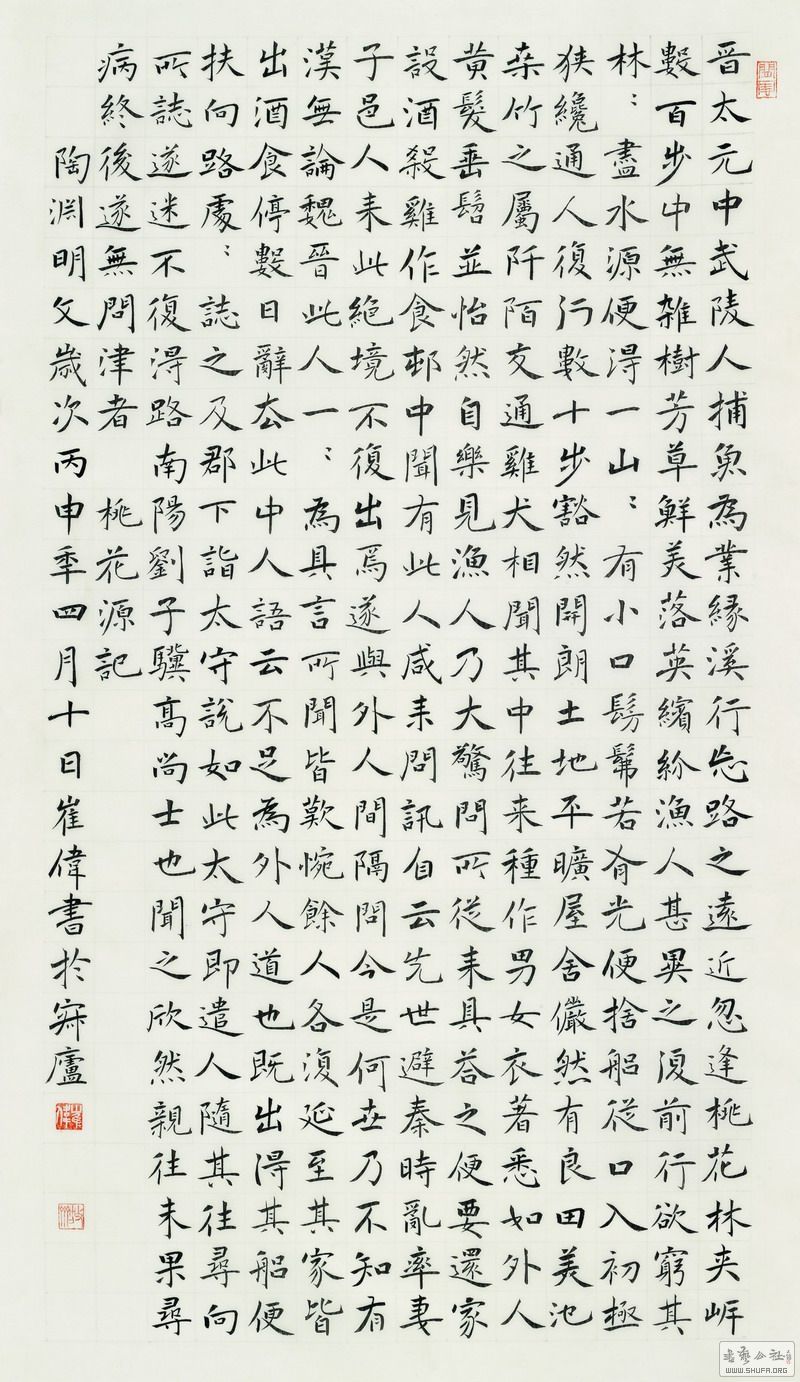 晋太元中武陵人捕魚為業緣溪行忘路之遠近忽逢桃花林夹岸
數百步中無雜樹芳草鮮美落英繽紛漁人甚異之復前行欲窮其
林〻盡水源便得一山〻有小口髣髴若有光便捨船從口入初極
狭纔通人復行數十步豁然開朗土地平曠屋舍儼然有良田美池
桑竹之屬阡陌交通雞犬相聞其中往来種作男女衣著悉如外人
黄髮垂髫並怡然自樂見漁人乃大驚問所從来具荅之便要還家
設酒殺雞作食邨中聞有此人咸来問訊自云先世避秦時亂率妻
子邑人来此絶境不復出焉遂與外人間隔問今是何世乃不知有
漢無論魏晉此人一〻為具言所聞皆歎惋餘人各復延至其家皆
出酒食停數日辭去此中人語云不足為外人道也既出得其船便
扶向路處〻誌之及郡下詣太守說如此太守即遣人隨其往尋向
所誌遂迷不復得路南陽劉子驥高尚士也聞之欣然親往未果尋
病終後遂無問津者 桃花源記
陶渊明文歲次丙申年四月十日崔偉書於寐廬
崔偉
書藝公社
WWW.SHUFA.ORG